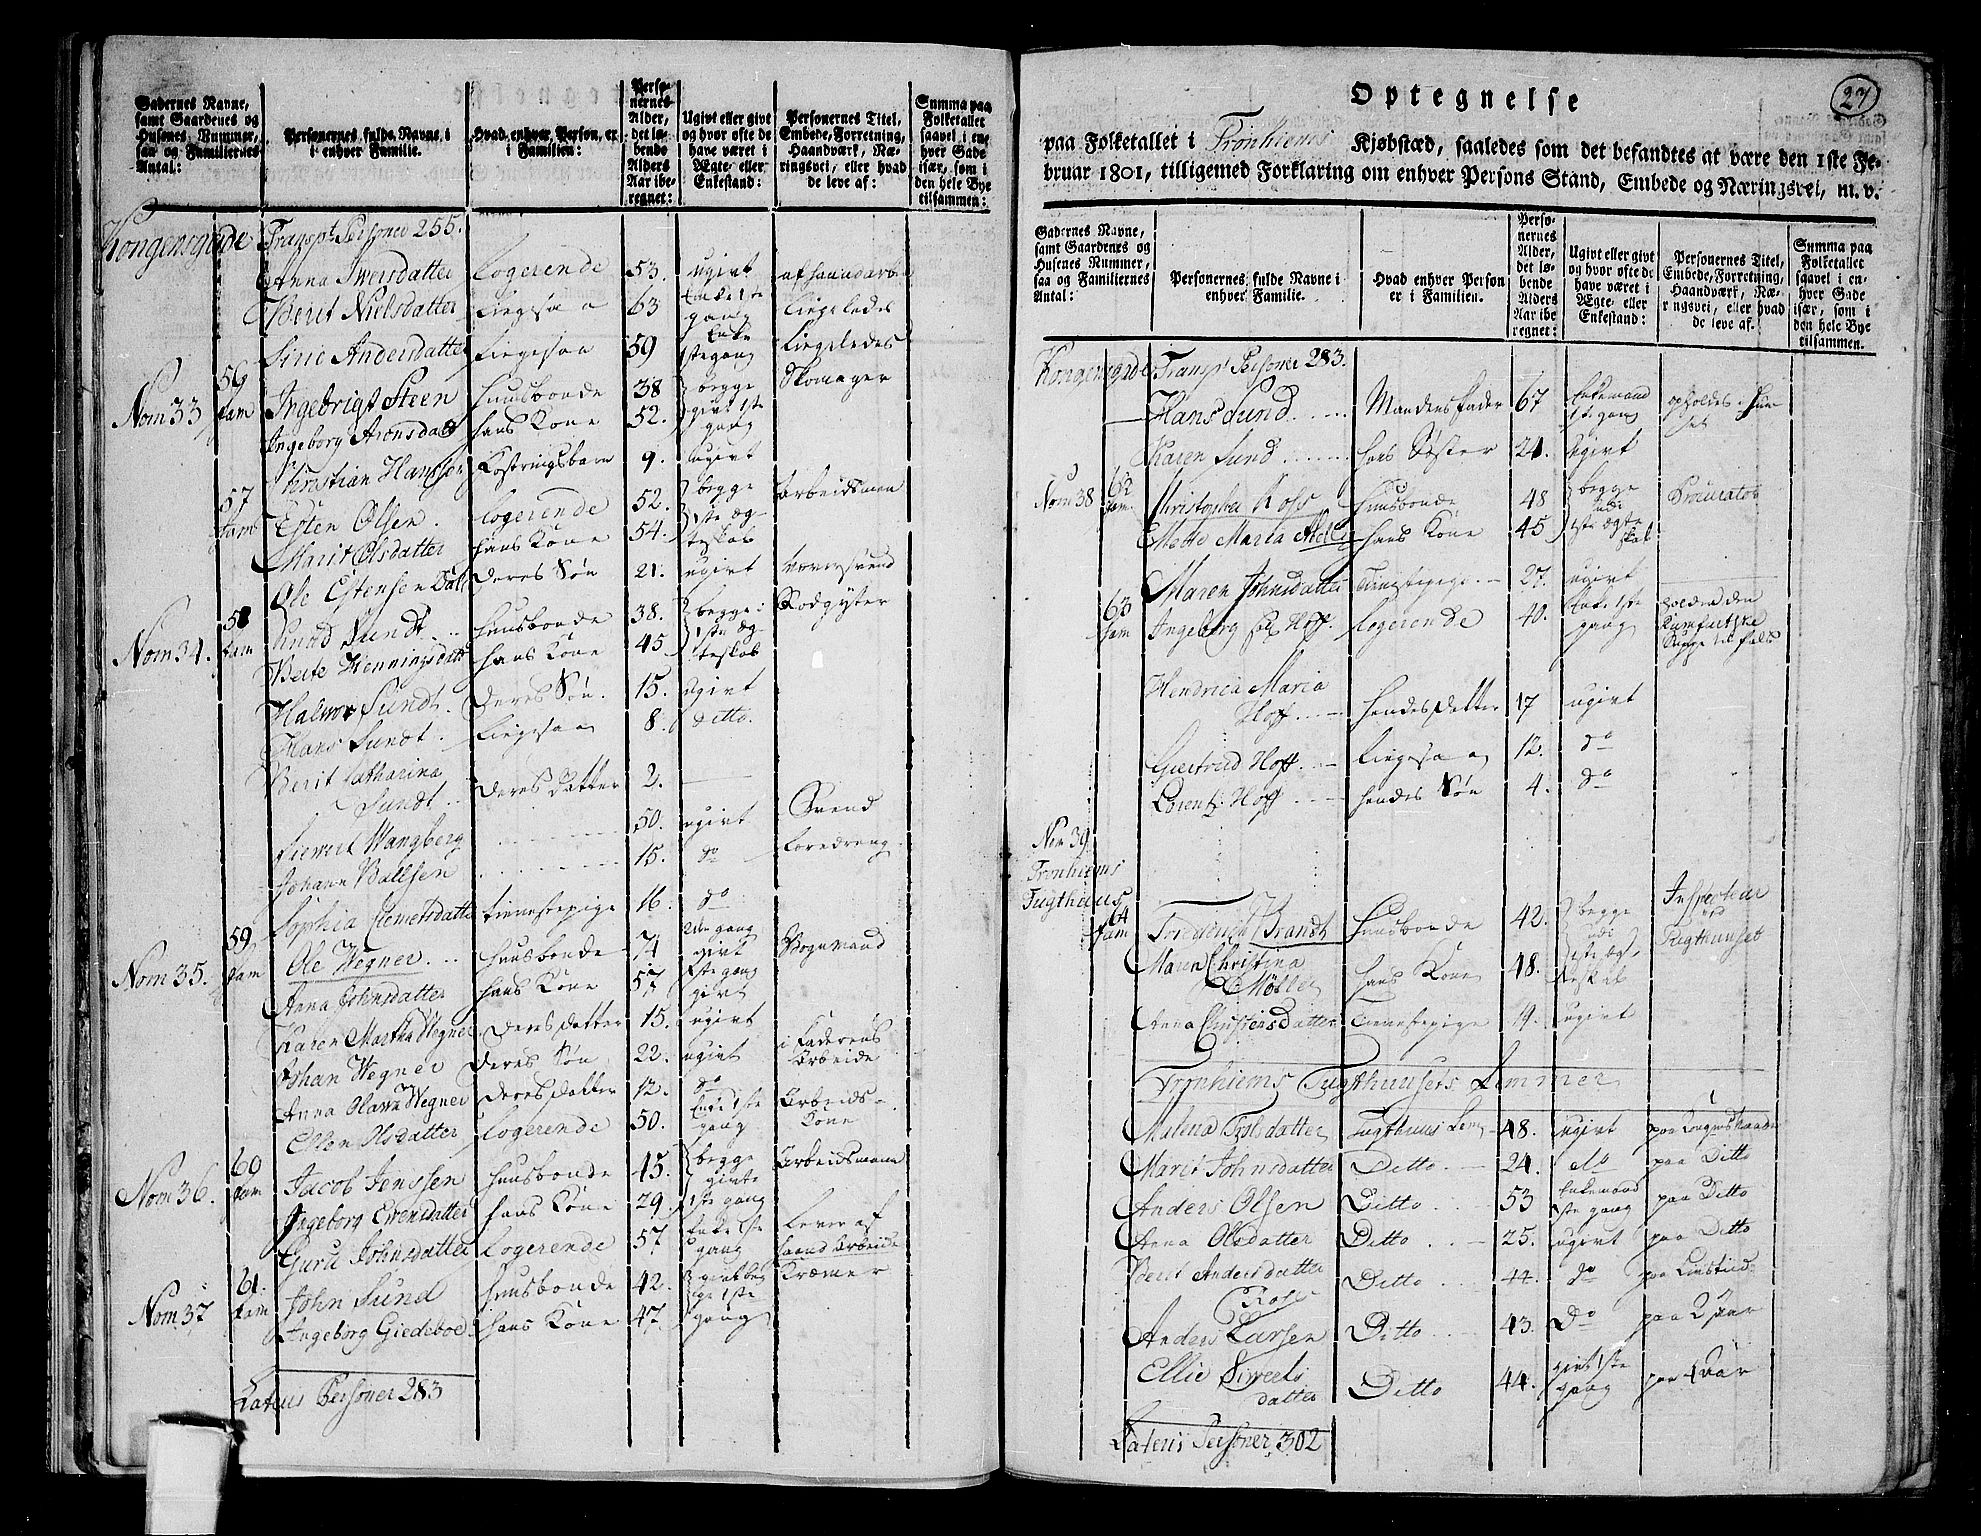 Gadernes Navne, samt Gaardenes og Husenes Nummer, saa og Familiernes Antal:
Personernes fulde Navne i enhver Familie.
Hvad enhver Person er i Familien:
Personernes Alder, det løbende Alders Aar iberegnet:
Ugivt eller givt og hvor ofte de have været i Ægte- eller Enkestand:
Personernes Titel, Embede, Forretning, Haandværk, Næringsvei, eller hvad de leve af:
Summa paa Folketallet saavel i enhver Gade især, som i den hele Bye tilsammen:
Kongensgade Transpt Personer 255.
Anna Iversdatter Logerende 53. ugivt af haandarb
Berit Nielsdatter Liigesaa 63 Enke 1ste gang Liigeledes
Siric Andersdatter Liigesaa 59 Enke 1ste gang Liigeledes
Nom 33 56 fam Ingebrigt Steen Huusbonde 38 begge givt 1ste gang Skomager
Ingeborg Aronsdatt hans Kone 52.
Christian Hanssen Fostringsbarn 9. ugivt
57 fam Esten Olsen. Logerende 52. begge 1ste ægteskab Arbeidsman
Marit Olsdatter hans Kone 54.
Ole Estensen Dahl deres Søn 21. ugivt
Nom 34. 58 fam Knud Sundt Huusbonde 38. begge 1ste ægteskab Rodgyter
Berte Henningsdatt hans Kone 45
Halvor Sundt. deres Søn. 15. Ugivt
Hans Sundt. Liigesaa 8. ditto.
Berit Catharina Sundt deres Datter 2.
Siewert Wangberg 50. ugivt Svend
Johann Ballsen 15. do Loredreng
Sophia Clemetsdatte tienestepige 16. do
Nom 35. 59 fam Ole Wegner Huusbonde 74 2den gang givt Vognmand
Anna Johnsdatter hans Kone 57 1ste gang givt
Karen Martha Wegner deres datter 15. ugivt
Johan Wegner deres Søn 22. ugivt i Faderens Arbeide
Anna Olawa Wegner deres datter 12. do
Ellen Olsdatter Logerende 50. Enke 1ste gang Arbeids-Kone
Nom 36. 60 fam Jacob Jenssen Huusbonde 45. begge givte 1ste gang Arbeidsmann
Ingeborg Ewensdatter hans Kone 29.
Guru Johnsdatter Logerende 57 Enke 1ste gang Lever af haand Arbeide
Nom 37 61. fam John Sund Huusbonde 42. givt begge 1ste gang Kræmer
Ingeborg Giedeboe hans Kone 47.
Latus Personer 283
27
Optegnelse
paa Folketallet i Tronhiems Kjøbstæd, saaledes som det befandtes at være den 1ste Februar 1801, tilligemed Forklaring om enhver Persons Stand, Embede og Næringsvei, m. v.
Gadernes Navne, samt Gaardenes og Husenes Nummer, saa og Familiernes Antal:
Personernes fulde Navne i enhver Familie.
Hvad enhver Person er i Familien.
Personernes Alder, det løbende Alders Aar iberegnet:
Ugivt eller givt og hvor ofte de have været i Ægte- eller Enkestand:
Personernes Titel, Embede, Forretning, Haandværk, Næringsvei, eller hvad de leve af.
Summa paa Folketallet saavel i enhver Gade især, som i den hele Bye tilsammen.
Kongensgade Transpt Personer 283.
Hans Sund Mandens fader 67 Enkemand 1ste gang opholdes i Huuset
Karen Sund hans Søster 24. Ugivt
Nom 38 62 fam. Christopher Ross Huusbonde 48 begge udi 1ste ægteskab Procurator
Mette Maria hans Kone 45
Maren Johnsdatter Tienstepige 27. ugivt
63 fam Ingeborg Hoff. Logerende 40. Enke 1ste gang
Hendrica Maria Hoff hendes datter 17 ugivt
Giertrud Hoff Liigesaa 12. do
Lorentz Hoff hendes Søn 4. do
Nom 39. Tronhiems Tugthuus
64 fam Friederich Brandt Huusbonde 42. begge udi 1ste ægteskab Inspecteur ved Tugthuuset
Maren Christina Møller hans Kone 48.
Anna Christensdatter tienestepige 19. ugivt
Tronhiems Tugthuusets Lemmer
Malena Troelsdatter Tugthuus Lem 48. ugivt paa Kongens Naade
Marit Johnsdatter Ditto 24. do paa Ditto
Anders Olsen Ditto 53 Enkemand 1ste gang paa Ditto
Anna Olsdatter Ditto 25. ugivt paa Ditto
Berit Andersdatter Ros Ditto 44. do paa Livstid
Anders Larsen Ditto 43. Do paa 2 Aar
Ellie Siverts datter Ditto 44. givt 1ste gang paa 4 Aar
Lateris Personer 302